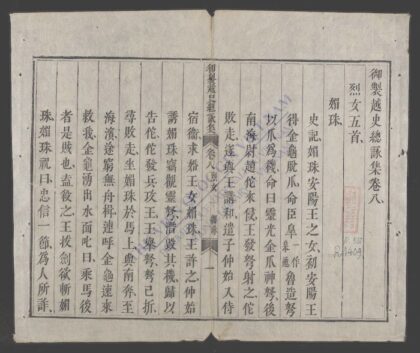 御製越史總詠集卷八
烈女五首
媚珠
史記媚珠安陽王之女初安陽王
得金龜脫爪命臣皐一作皐通魯造弩
以爪爲機命曰靈光金爪神弩後
南海尉趙佗來侵王發弩射之佗
敗走遂與王講和遣子仲始入侍
御製越史總詠集 卷八 烈女 媚珠 一
宿衞求婚王女媚珠王許之仲始
誘媚珠竊觀靈弩潛毀其機歸以
告佗佗發兵攻王王舉弩弩已折
尋敗走坐媚珠於馬上與南奔至
海濱途窮無舟楫連呼金龜速來
救我金龜湧出水面叱曰乘馬後
者是賊也盍殺之王拔劍欲斬媚
珠媚珠祝曰忠信一節爲人所詐